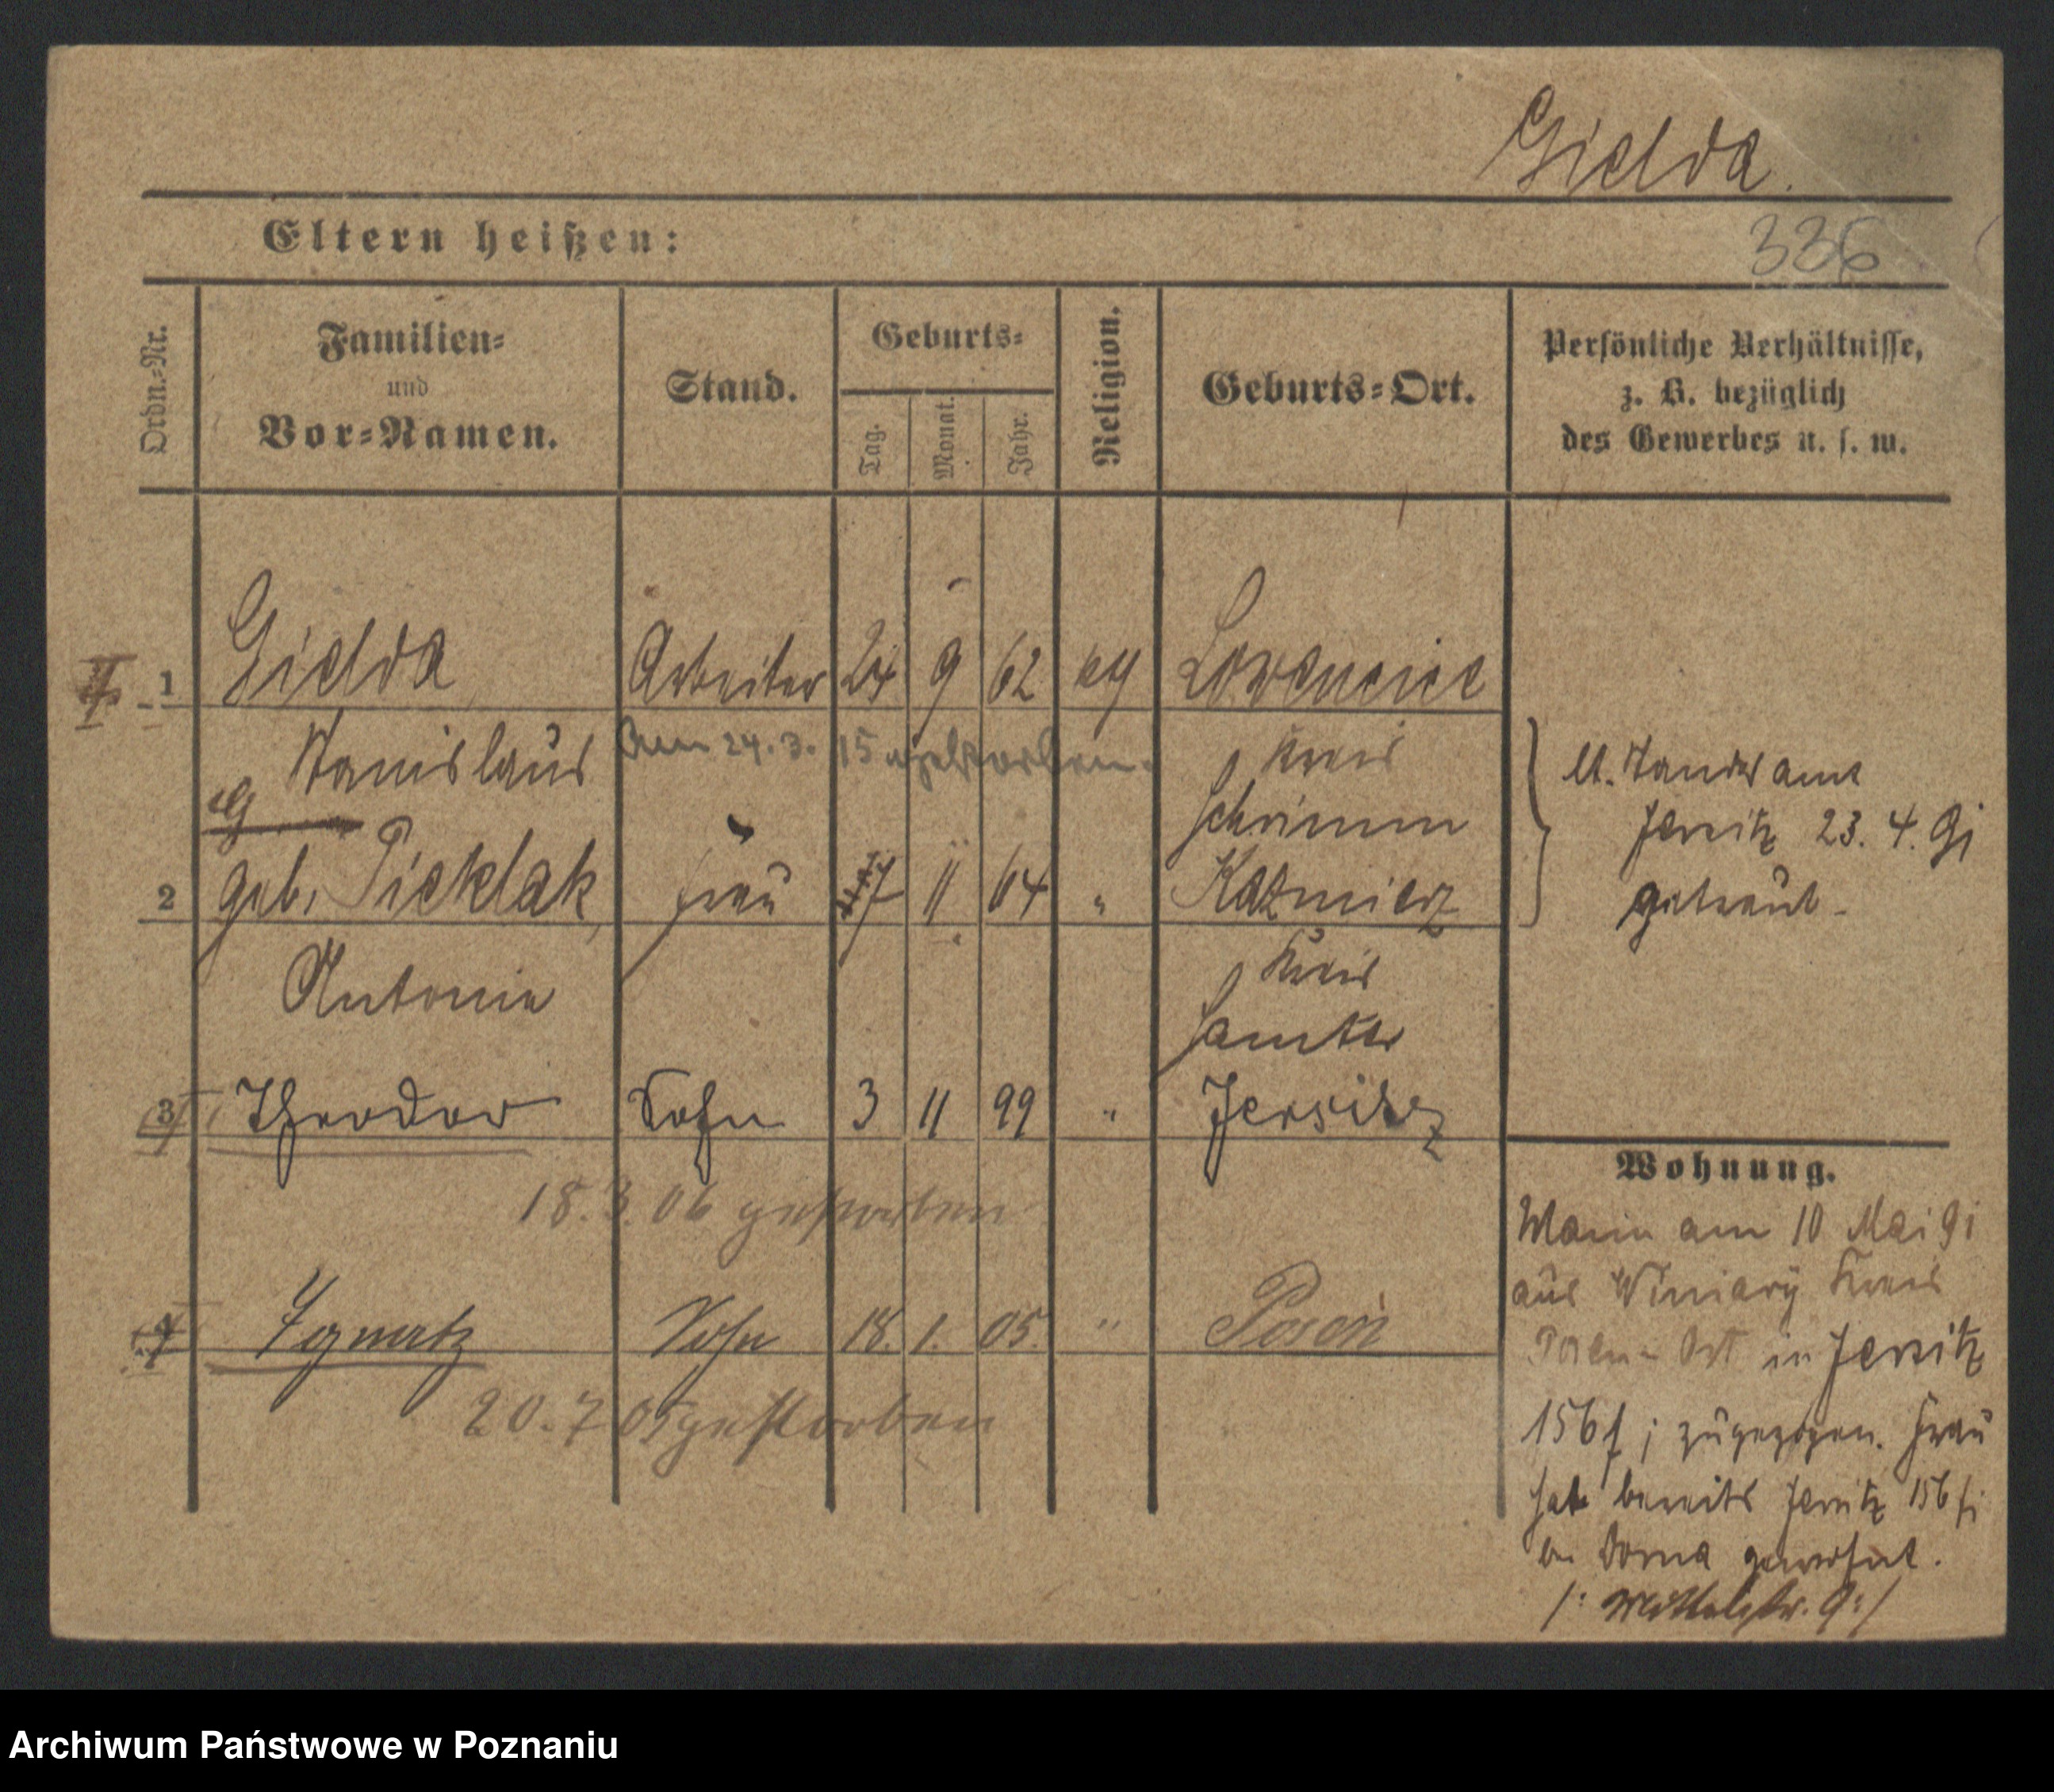 Gielda.
Eltern heißen:
336
Ordn.-Nr.
Familien-
und
Vor-Namen.
Stand.
Geburts-
Tag.
Monat.
Jahr.
Religion.
Geburts-Ort.
Persönliche Verhältnisse,
z. B. bezüglich
des Gewerbes u. s. w.
1 Gielda Arbeiter 24 9 62 kg Lowencice
Stanislaus Am 24.3.15 gestorben. Kreis
Schrimm
2 geb. Pieklak, Frau 7 11 64 " Kazmierz
Antonie Kreis
Samter
lt. Standesamt
Jersitz 23. 4. 91
getraut.
3 Theodor Sohn 3 11 99 " Jersitz
18.3.06 gestorben
4 Ignatz Sohn 18. 1. 05. " Posen
20.7 05 gestorben
Wohnung.
Mann am 10 Mai 91
aus Winiary Kreis
Posen-Ost in Jersitz
156f; zugezogen. Frau
hat bereits Jersitz 156f
gewohnt.
/: Mittelstr. 9:/
Archiwum Państwowe w Poznaniu